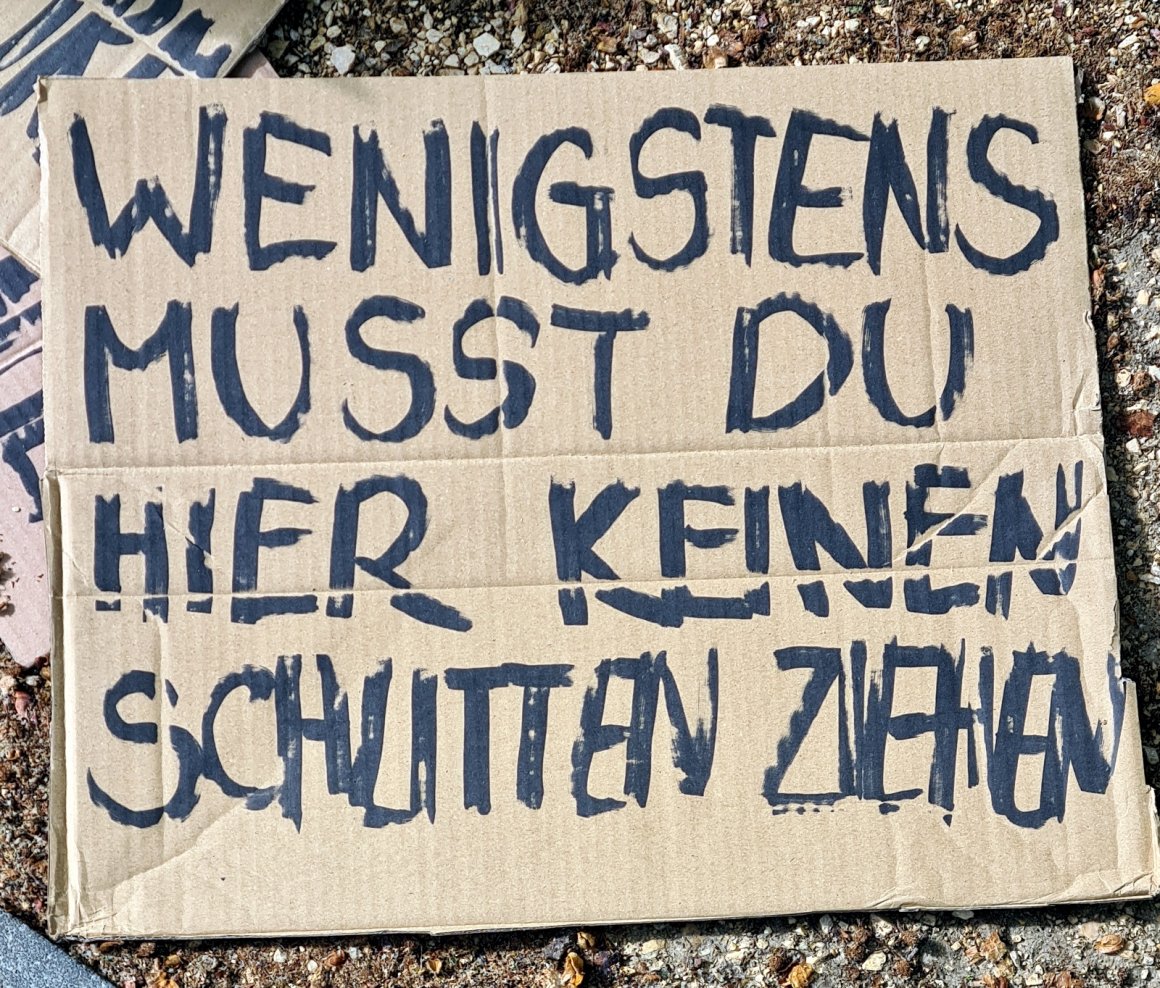 WENIGSTENS
MUSST DU
HIER KEINEN
SCHLITTEN ZIEHEN